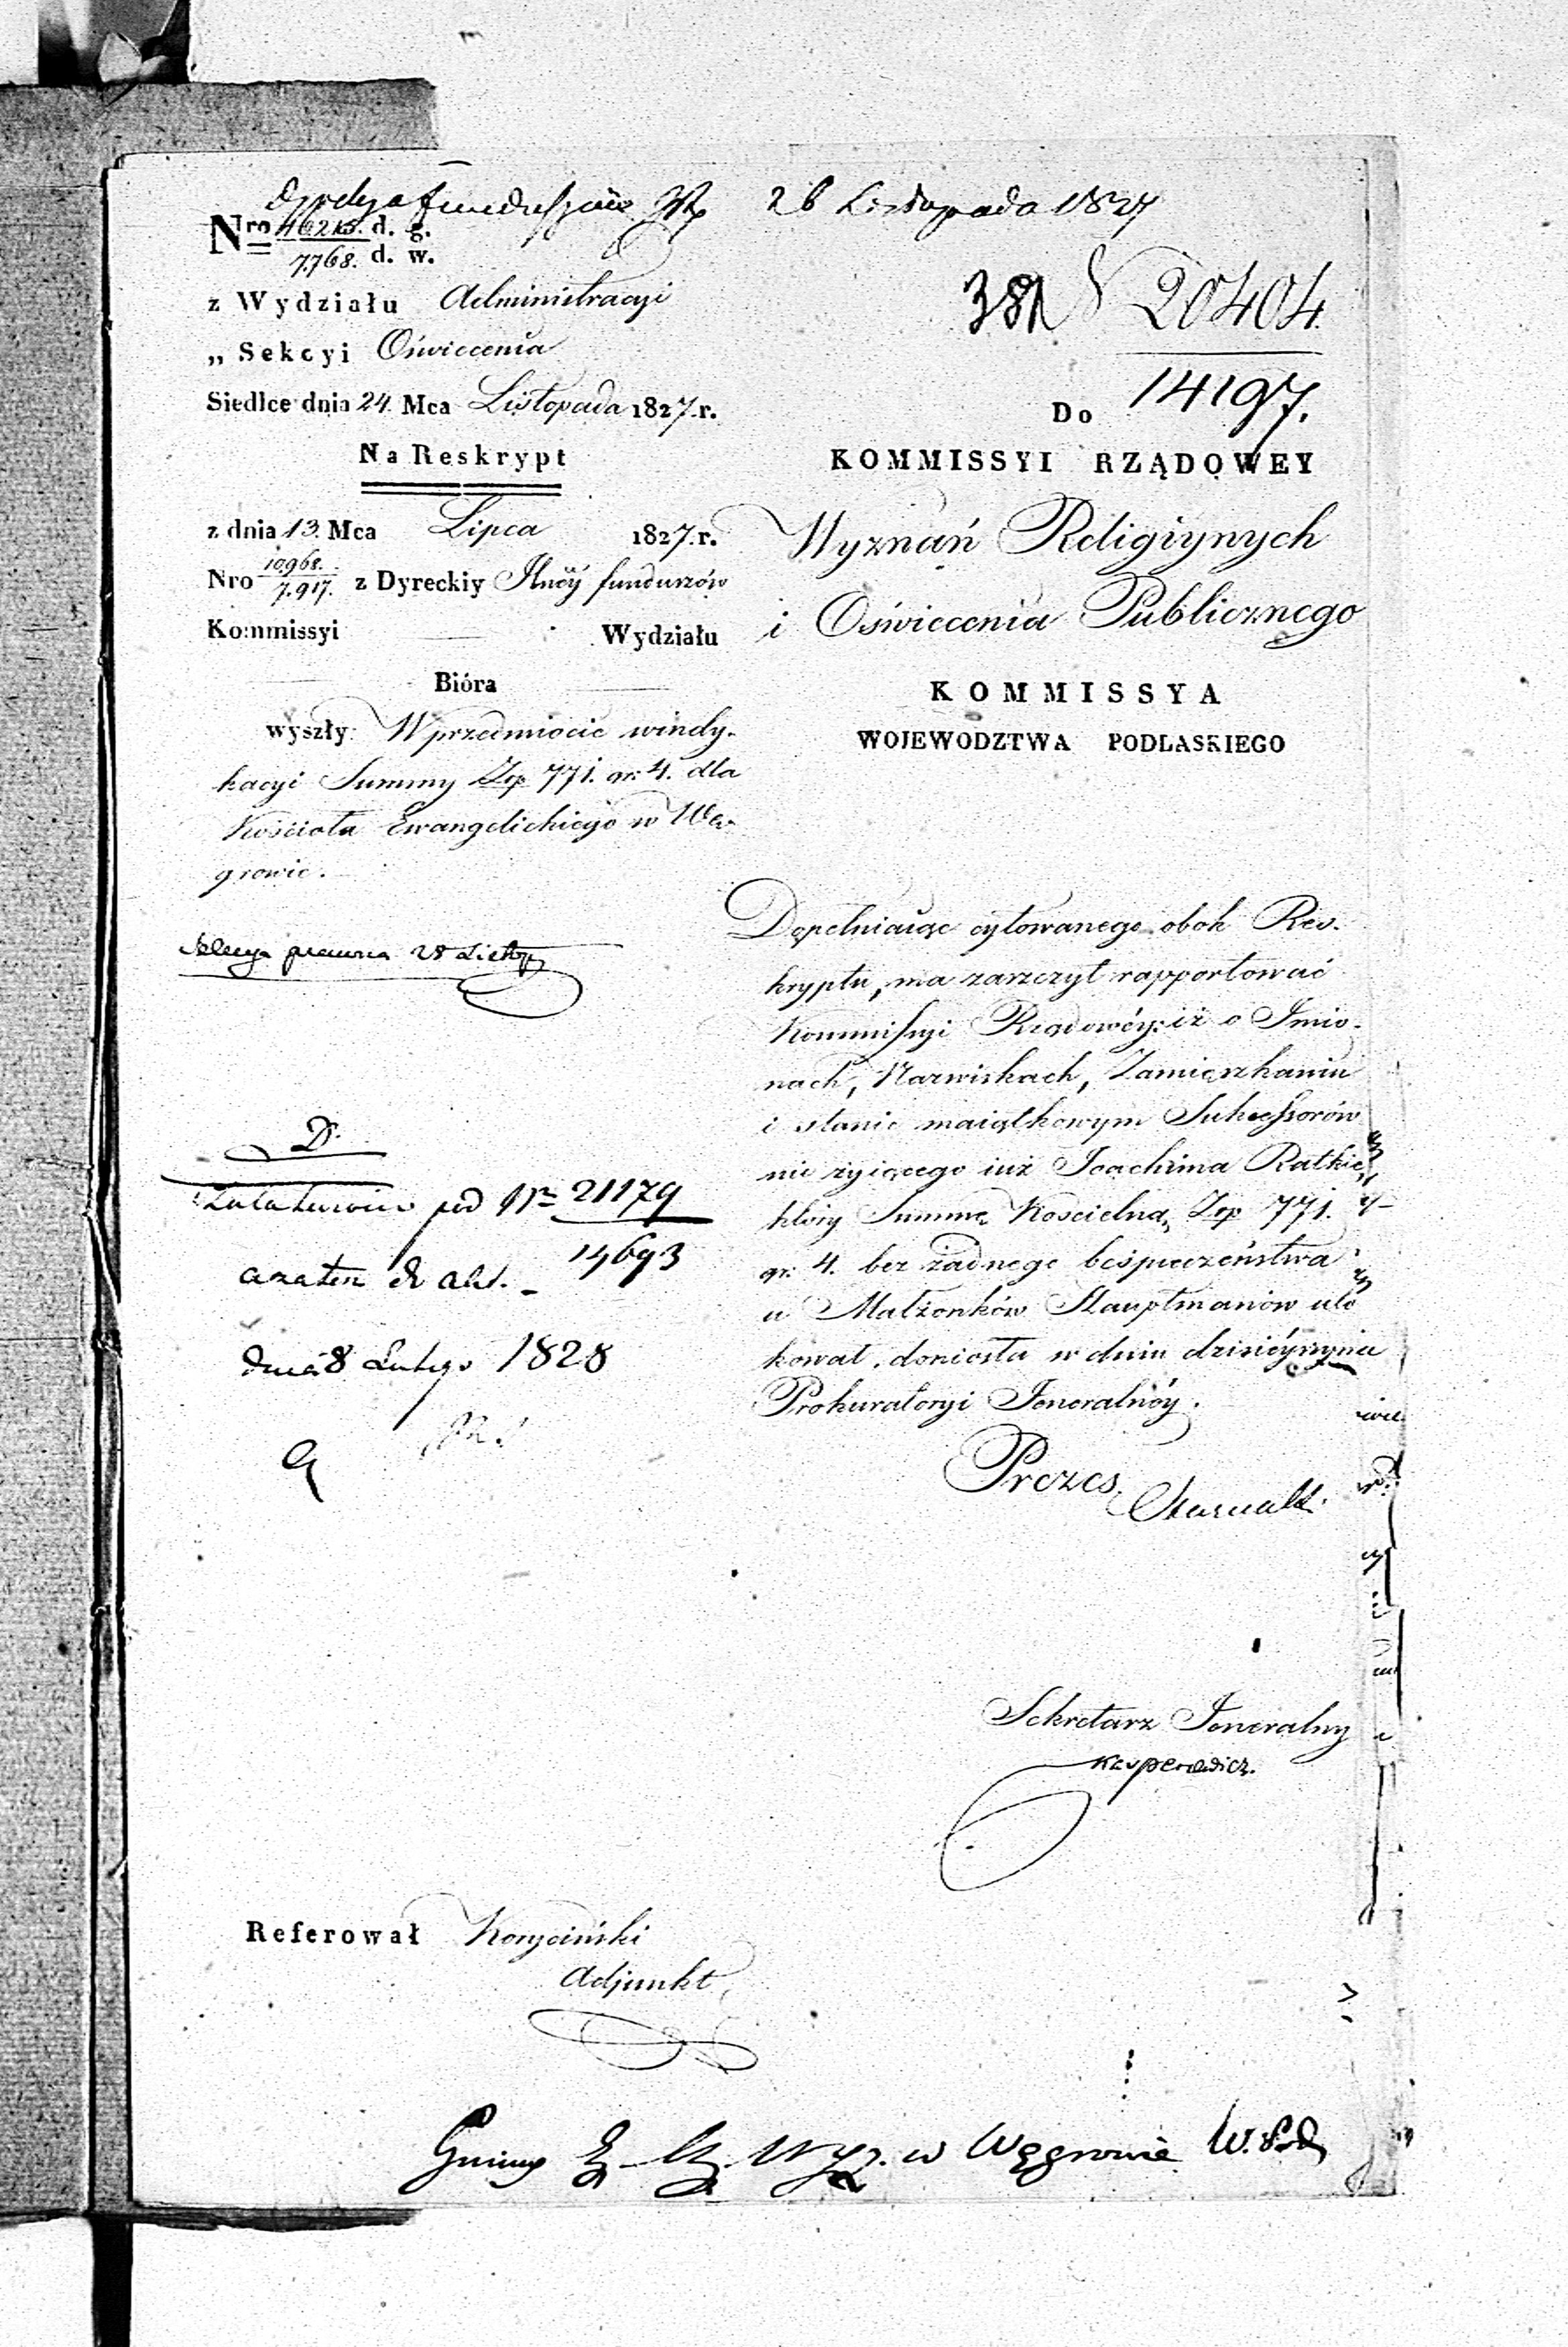 26 Listopada 1827
Nro 46213. d. g.
7.768. d. w.
z Wydziału Administracyi
„ Sekcyi Oświecenia
Siedlce dnia 24. Mca Listopada 1827. r.
Na Reskrypt
z dnia 13. Mca Lipca 1827. r.
Nro 10968. / 7.917. z Dyreckiy Jlnéy funduszów
Kommissyi Wydziału
Bióra
wyszły: W przedmiocie windy-
kacyi Summy Złp 771. gr: 4. dla
Kościoła Ewangelickiego w Wę-
growie.
prawna 28 Listop
pod Nr 21179
14693
dnia 8 Lutego 1828
381
20404
14197.
Do
KOMMISSYI RZĄDOWEY
Wyznań Religiynych
i Oświecenia Publicznego
KOMMISSYA
WOJEWODZTWA PODLASKIEGO
Dopełniaiąc cytowanego obok Res-
kryptu, ma zaszczyt rapportować
Kommissyi Rządowéy: iż o Imio-
nach, Nazwiskach, Zamięszkaniu
i stanie maiątkowym Sukcessorów
nie żyiącego iuż Joachima Ratkie
który Summę Kościelną Złp 771.
gr: 4. bez żadnego bespieczeństwa
u Małżonków Hauptmanów ulo
kował, doniosła w dniu dzisiéyszym
Prokuratoryi Jeneralnéy.
Prezes
Sekretarz Jeneralny
Kasperowicz.
Referował Koryciński
Adjunkt
Gminy w Węgrowie